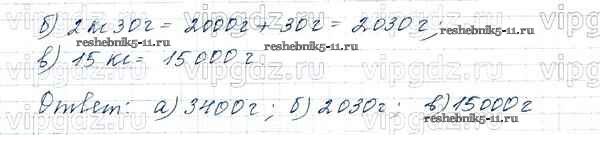 б) 2 кг 30 г = 2000 г + 30 г = 2030 г;
reshebnik5-11.ru reshebnik5-11.ru
в) 15 кг = 15000 г
reshebnik5-11.ru
vipgdz.ru vipgdz.ru vipgdz.ru vipgdz.ru
Ответ: а) 3400 г; б) 2030 г; в) 15000 г
reshebnik5-11.ru reshebnik5-11.ru